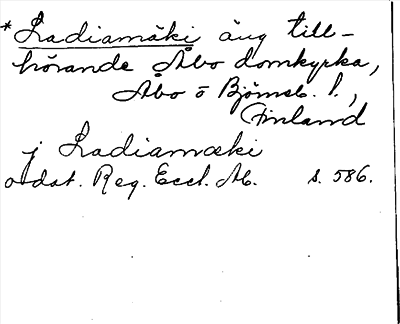 * Ladiamäki äng till-
hörande Åbo domkyrka,
Åbo o Björneb. l.,
Finland
j Ladiamæki
odat. Reg. Eccl. Ab. s. 586.